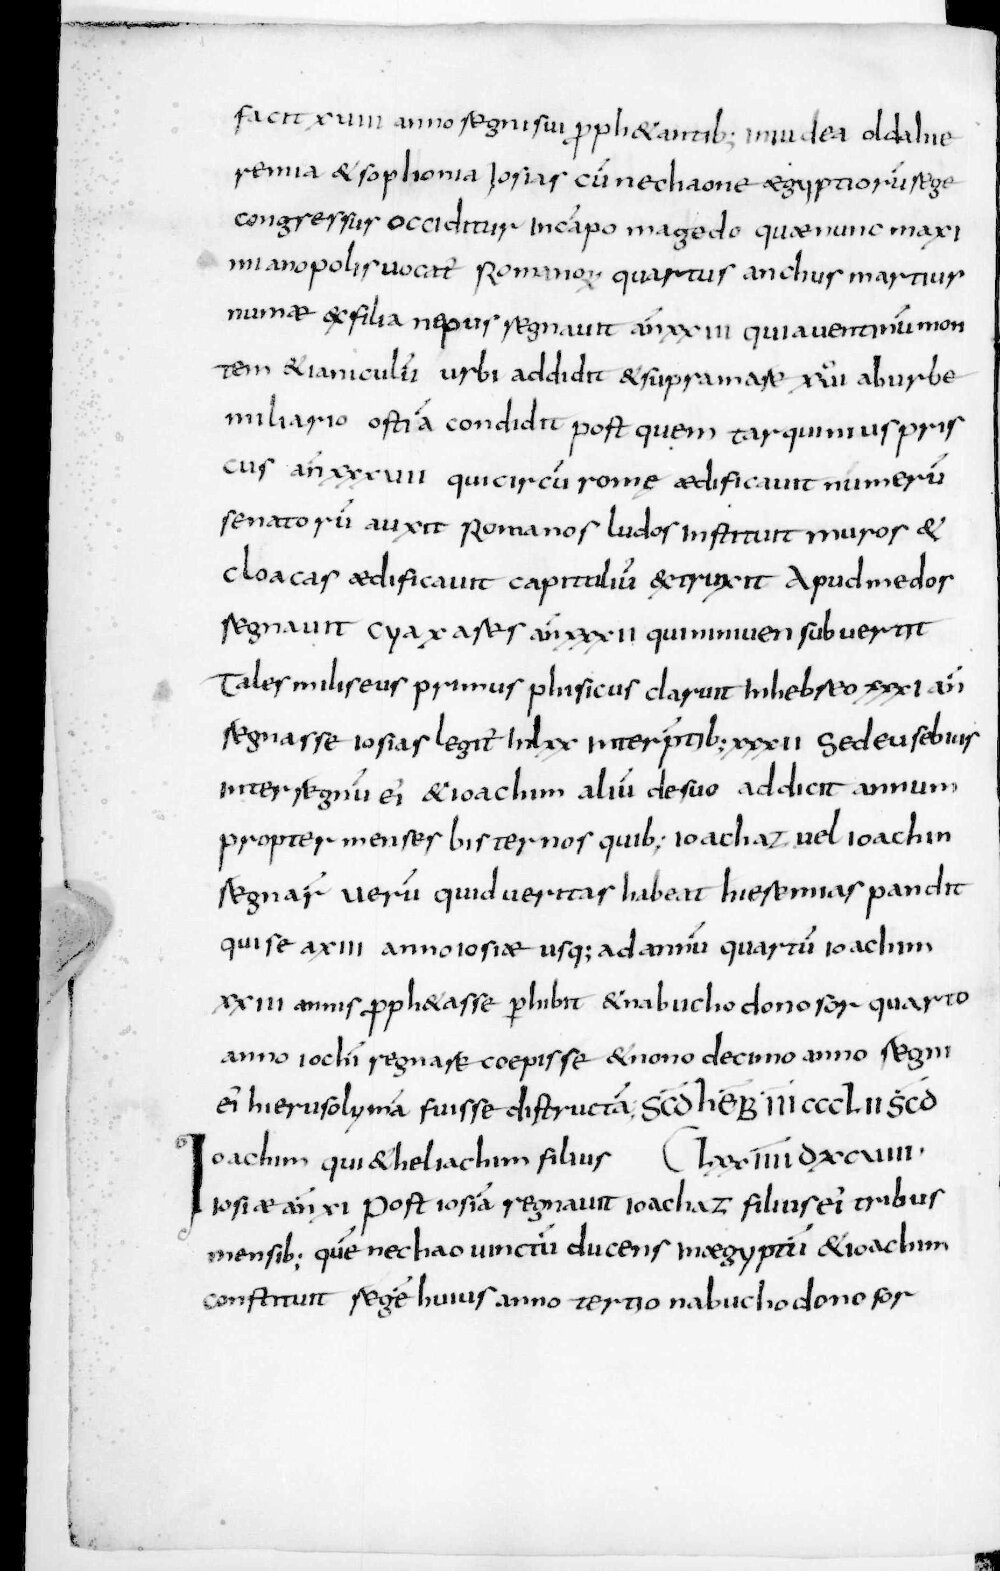 facit xviii anno regni sui ꝓph&antib; in iudea oldahie
remia & sophonia Iosias cū nechaone ægyptiorū rege
congressus occiditur incāpo magedo quæ nunc maxi
mianopolis vocat̄ Romanoꝝ quartus anchus martius
numæ ex filia nepus regnavit an̄ xxiii qui aventinū mon
tem & ianiculū urbi addidit & supra mare xvi ab urbe
miliario ostiā condidit post quem tarquinius pris
cus an̄ xxxvii qui circū romę ædificavit numerū
senatorū auxit Romanos ludos instituit muros &
cloacas ædificavit capitoliū extruxit Apud medos
regnavit cyaxares an̄ xxxii qui niniven subvertit
Tales miliseus primus phisicus claruit In hebreo xxxi an̄
regnasse iosias legit̄ In lxx interp̄tib; xxxii Sed eusebius
inter regnū ei & ioachim aliū de suo addicit annum
propter menses bis ternos quib; ioachaz vel ioachin
regnar̄ verū quid veritas habeat hieremias pandit
qui se a xiii anno iosiæ usq; ad annū quartū ioachim
xxiii annis ꝓph&asse ꝑhibit & nabuchodonosor quarto
anno iochī regnare coepisse & nono decimo anno regni
ei hierusolymā fuisse distructā, SCD̄ HĒB III CCCLII SCD̄
Ioachim qui & heliachim filius lxx IIII DXCVIII.
iosiæ an̄ xi Post iosiā regnavit ioachaz filius ei tribus
mensib; quē nechao vinctū ducens in ægyptū & ioachim
constituit regē huius anno tertio nabuchodonosor